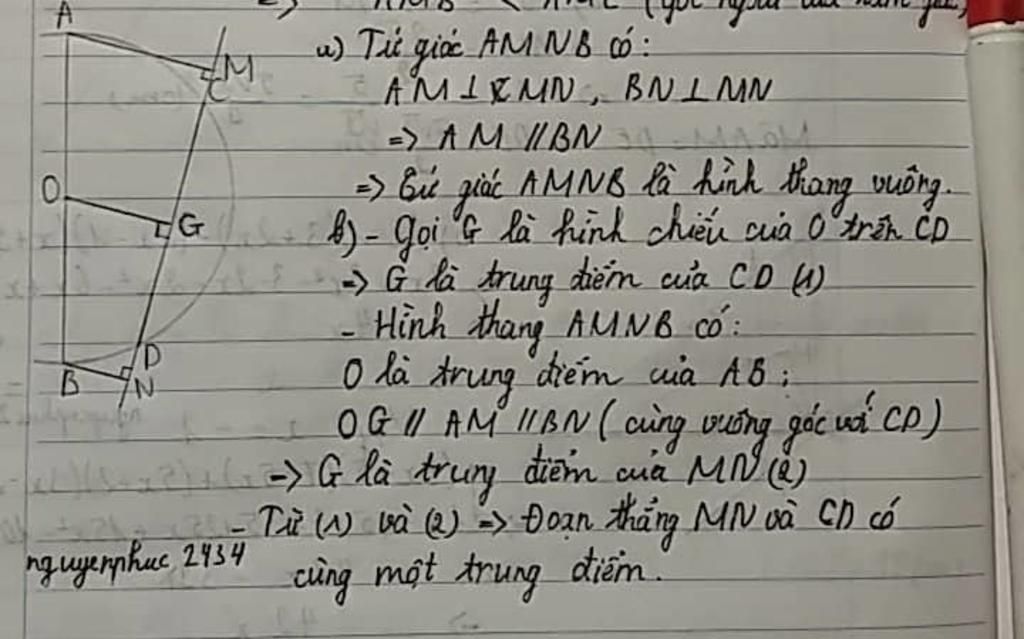 => AMB < AMC (góc ngoài của tam giác)
a) Tứ giác AMNB có:
AM ⊥ MN, BN ⊥ MN
=> AM // BN
=> Tứ giác AMNB là hình thang vuông.
b) - Gọi G là hình chiếu của O trên CD
=> G là trung điểm của CD (1)
- Hình thang AMNB có:
O là trung điểm của AB;
OG // AM // BN (cùng vuông góc với CD)
=> G là trung điểm của MN (2)
- Từ (1) và (2) => Đoạn thẳng MN và CD có
cùng một trung điểm.
nguyenphuc 2434
A
M
C
O
G
D
B
N